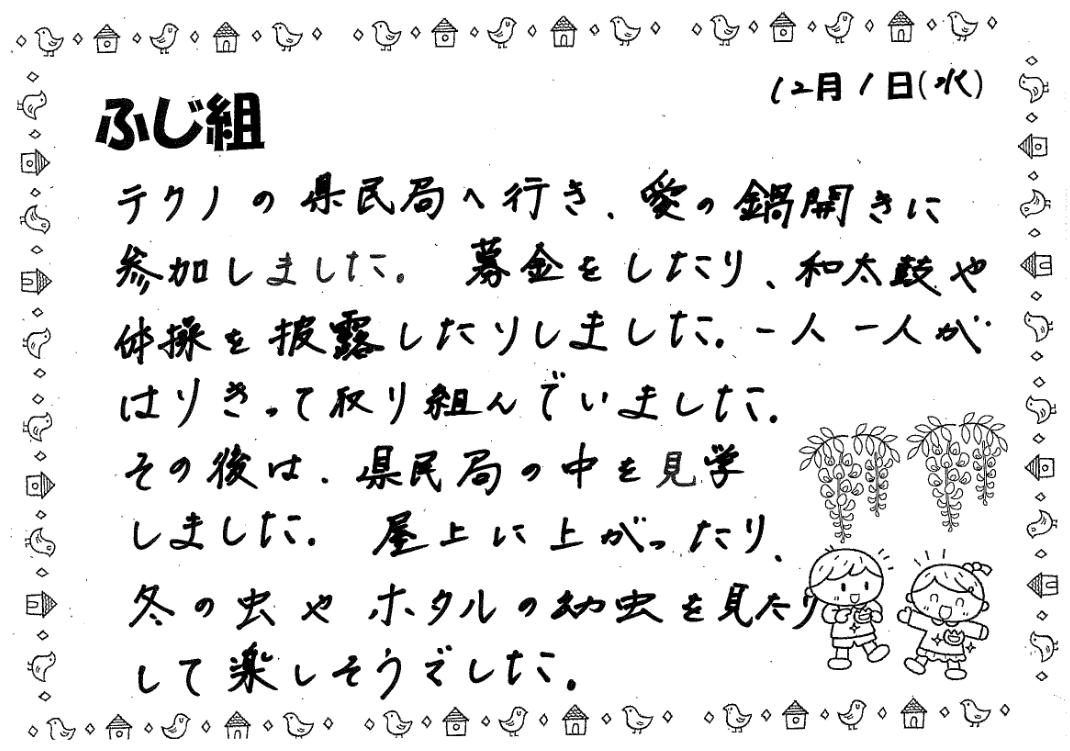 12月1日(水)
ふじ組
テクノの県民局へ行き、愛の鍋開きに
参加しました。募金をしたり、和太鼓や
体操を披露したりしました。一人一人が
はりきって取り組んでいました。
その後は、県民局の中を見学
しました。屋上に上がったり、
冬の虫やホタルの幼虫を見たり
して楽しそうでした。